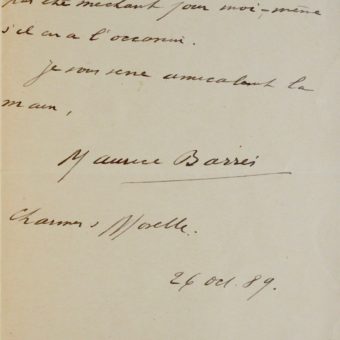 pas été méchant pour moi-même
s'il en a l'occasion.
Je vous serre amicalement la
main,
Maurice Barrès
Charmes s Moselle.
26 oct. 89.